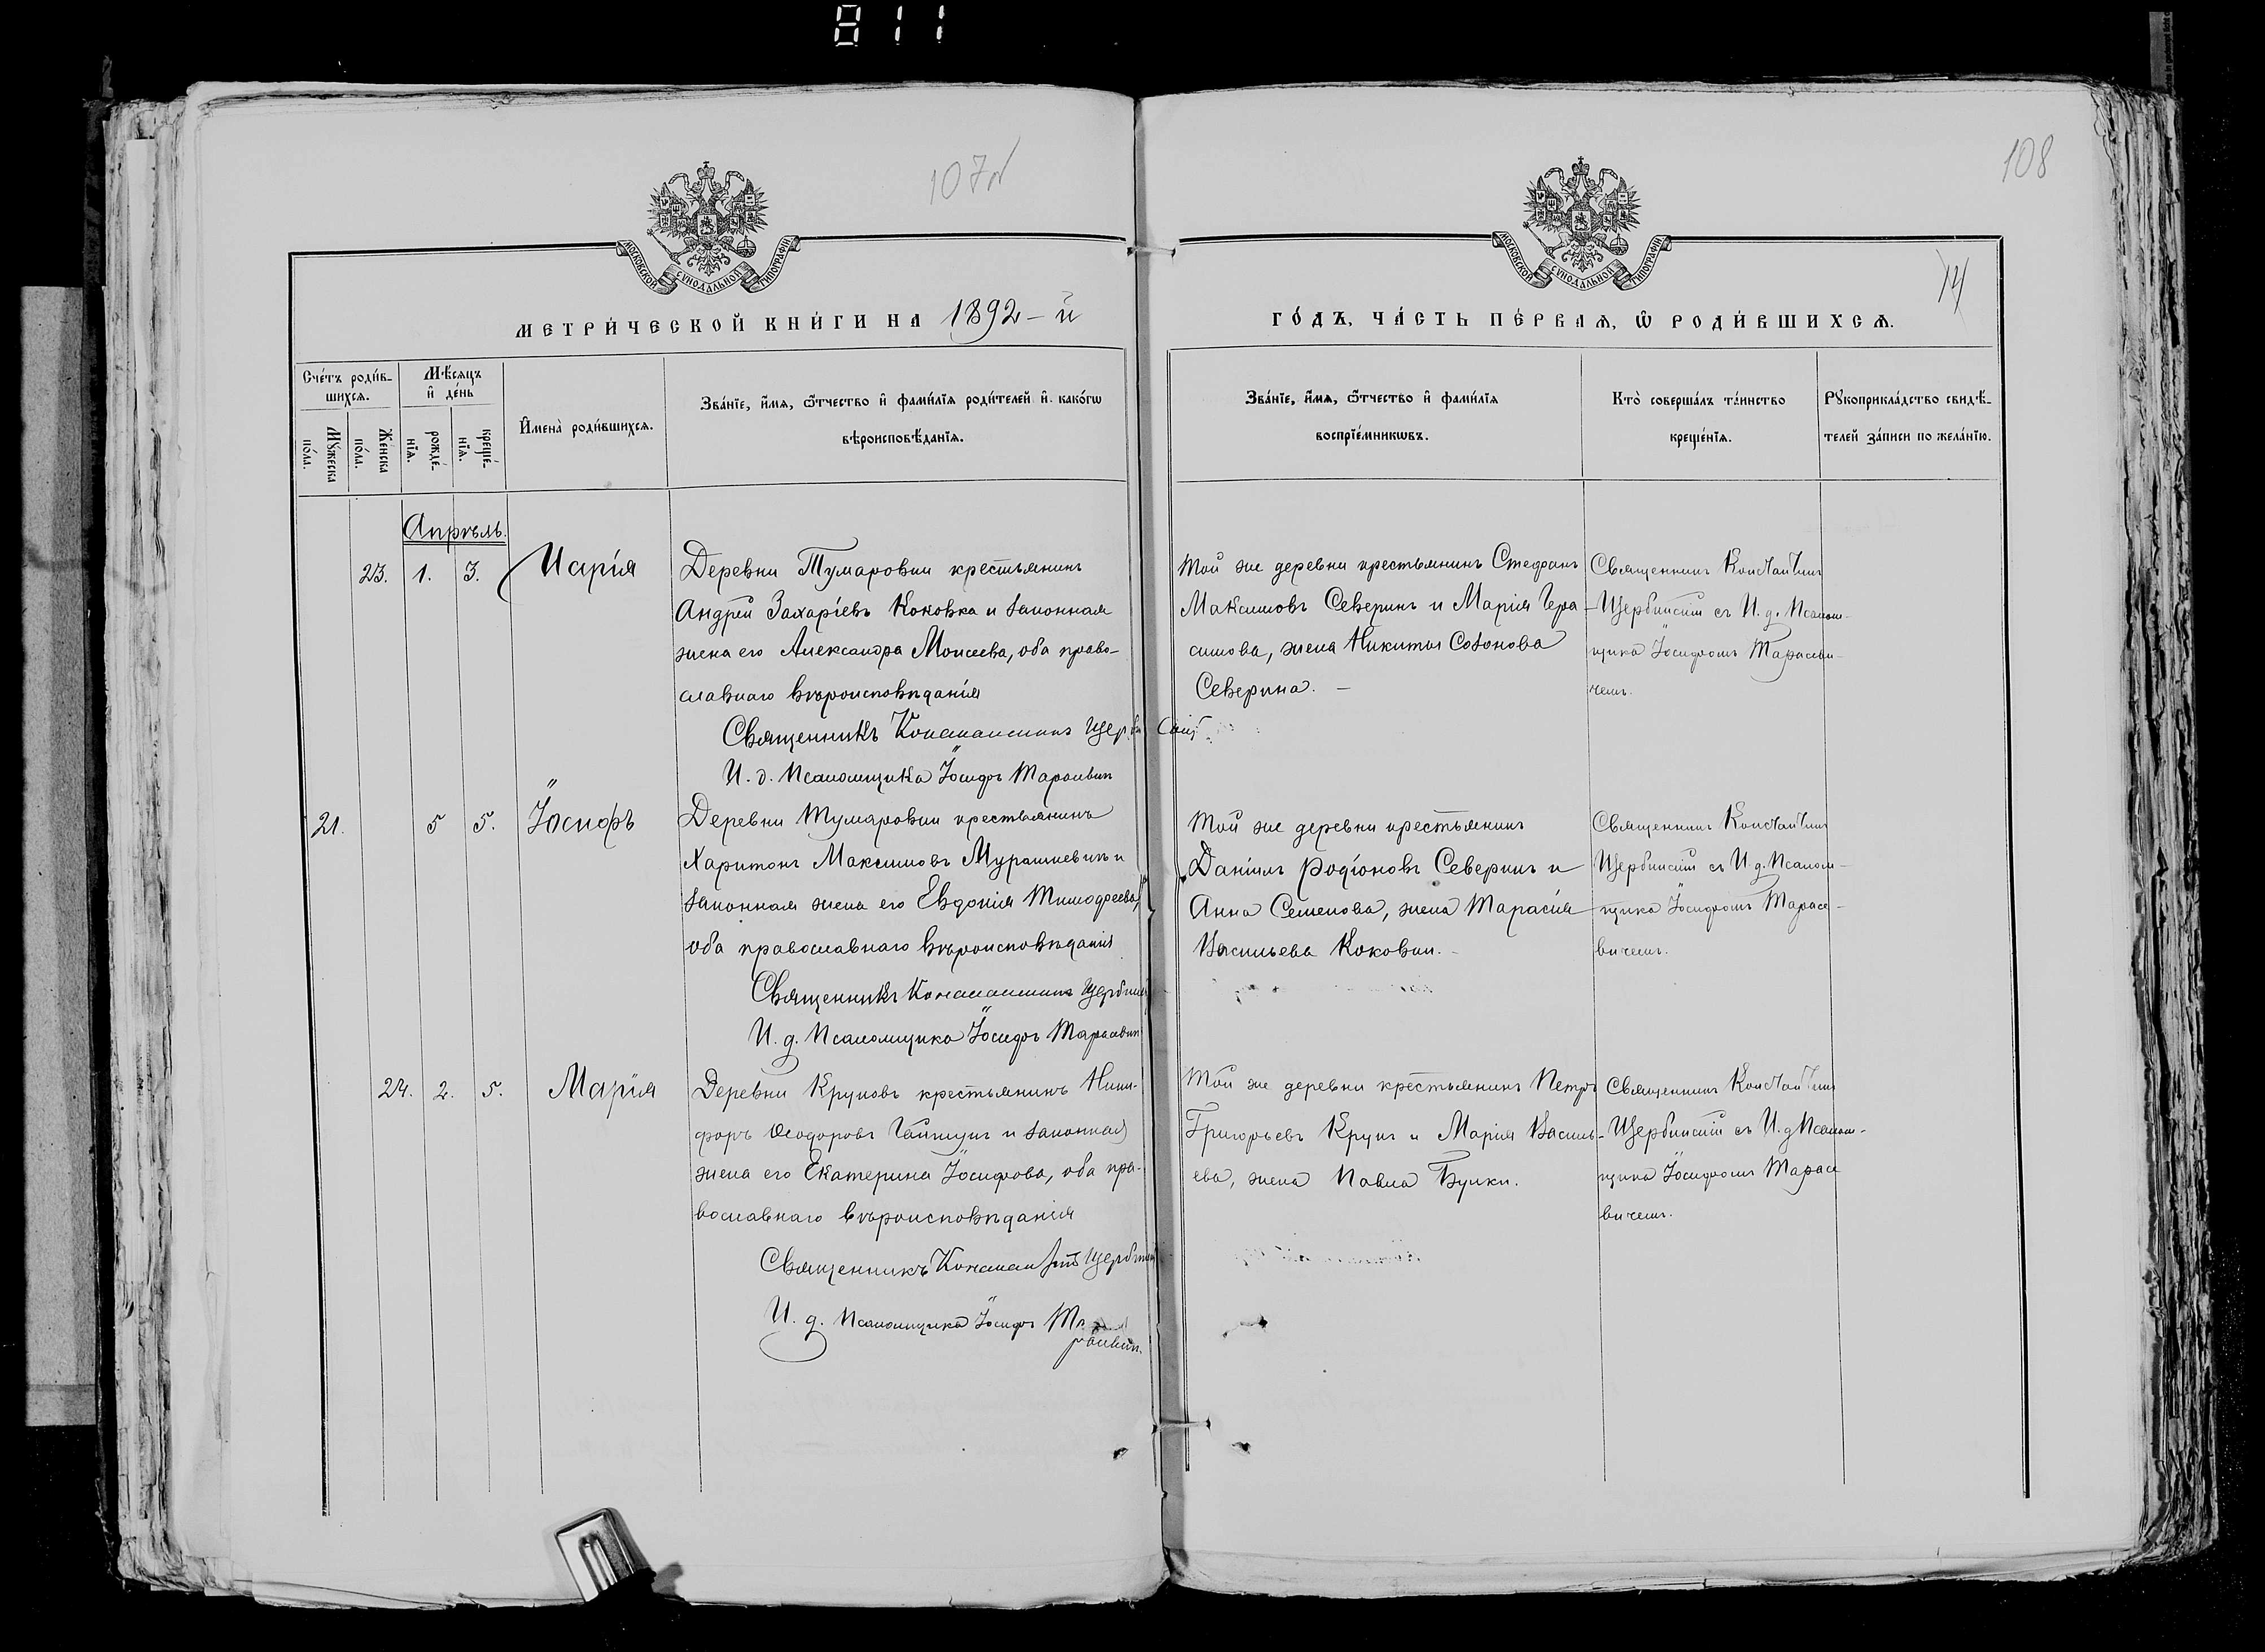 811
107об
108
14
МОСКОВСКОЙ СѴНОДАЛЬНОЙ ТИПОГРАФІИ
МОСКОВСКОЙ СѴНОДАЛЬНОЙ ТИПОГРАФІИ
МЕТРИ́ЧЕСКОЙ КНИ́ГИ НА 1892-й
ГО́ДЪ, ЧА́СТЬ ПЕ́РВАЯ, Ѡ РОДИ́ВШИХСЯ.
Сче́тъ роди́в-
шихся.
Му́жеска по́ла.
Же́нска по́ла.
Мѣ́сяцъ
и҆ де́нь
рожде́-
нїя.
креще́-
нїя.
И҆мена̀ роди́вшихся.
Зва́нїе, и҆́мя, ѻ҆́тчество и҆ фами́лїя роди́телей и҆ како́гѡ
вѣроисповѣ́данїя.
Зва́нїе, и҆́мя, ѻ҆́тчество и҆ фами́лїя
воспрїе́мникѡвъ.
Кто̀ соверша́лъ та́инство
креще́нїя.
Рꙋкоприкла́дство свидѣ́-
телей за́писи по жела́нїю.
Апрѣль.
23. 1. 3. Марія
Деревни Тумаровки крестьянинъ
Андрей Захаріевъ Коковка и законная
жена его Александра Моисеева, оба право-
славнаго вѣроисповѣданія
Священникъ Константинъ Щербинскій
И. д. Псаломщика Іосифъ Тарасевич
Той же деревни крестьянинъ Стефанъ
Максимовъ Северинъ и Марія Гера-
симова, жена Никиты Созонова
Северина. –
Священникъ Константинъ
Щербинскій съ И. д. Псалом-
щика Іосифомъ Тарасеви-
чемъ.
21. 5 5. Іосифъ
Деревни Тумаровки крестьянинъ
Харитонъ Максимовъ Мурашкевичъ и
законная жена его Евдокія Тимофеева,
оба православнаго вѣроисповѣданія
Священникъ Константинъ Щербинскій
И. д. Псаломщика Іосифъ Тарасевич
Той же деревни крестьянинъ
Даніилъ Родіоновъ Северинъ и
Анна Семенова, жена Тарасія
Васильева Коковки. –
Священникъ Константинъ
Щербинскій съ И. д. Псалом-
щика Іосифомъ Тарасе-
вичемъ.
24. 2. 5. Марія
Деревни Круковъ крестьянинъ Ники-
форъ Ѳеодоровъ и законная
жена его Екатерина Іосифова, оба пра-
вославнаго вѣроисповѣданія
Священникъ Константинъ Щербинскій
И. д. Псаломщика Іосифъ Та
расевич.
Той же деревни крестьянинъ Петръ
Григорьевъ Крукъ и Марія Василь-
ева, жена Павла Буики.
Священникъ Константинъ
Щербинскій съ И. д. Псалом-
щика Іосифомъ Тарасе
вичемъ.